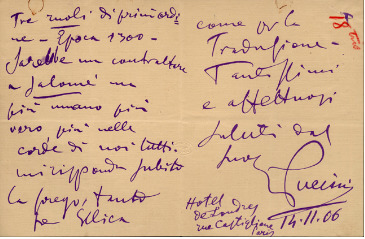 Tre ruoli di primordi
ne - Epoca 1300 -
Sarebbe un contraltare
a Salomé ma
più umano più
vero più nelle
corde di noi tutti.
mi risponda subito
la prego, tanto
per Illica
come per la
Traduzione -
Tantissimi
e affettuosi
saluti dal
suo
Puccini
Hotel
de Londres
rue Castiglione
Paris
14.11.06